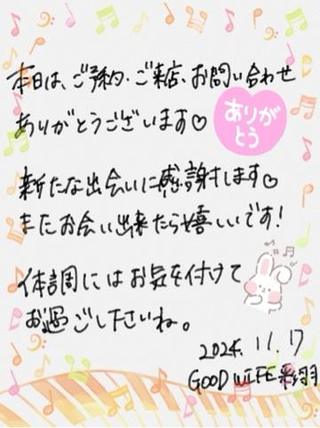 本日は、ご予約・ご来店、お問い合わせ
ありがとうございます♡
ありが
とう
新たな出会いに感謝します♡
またお会い出来たら嬉しいです!
体調にはお気を付けて
お過ごし下さいね。
2024.11.17
GOOD WIFE 彩羽